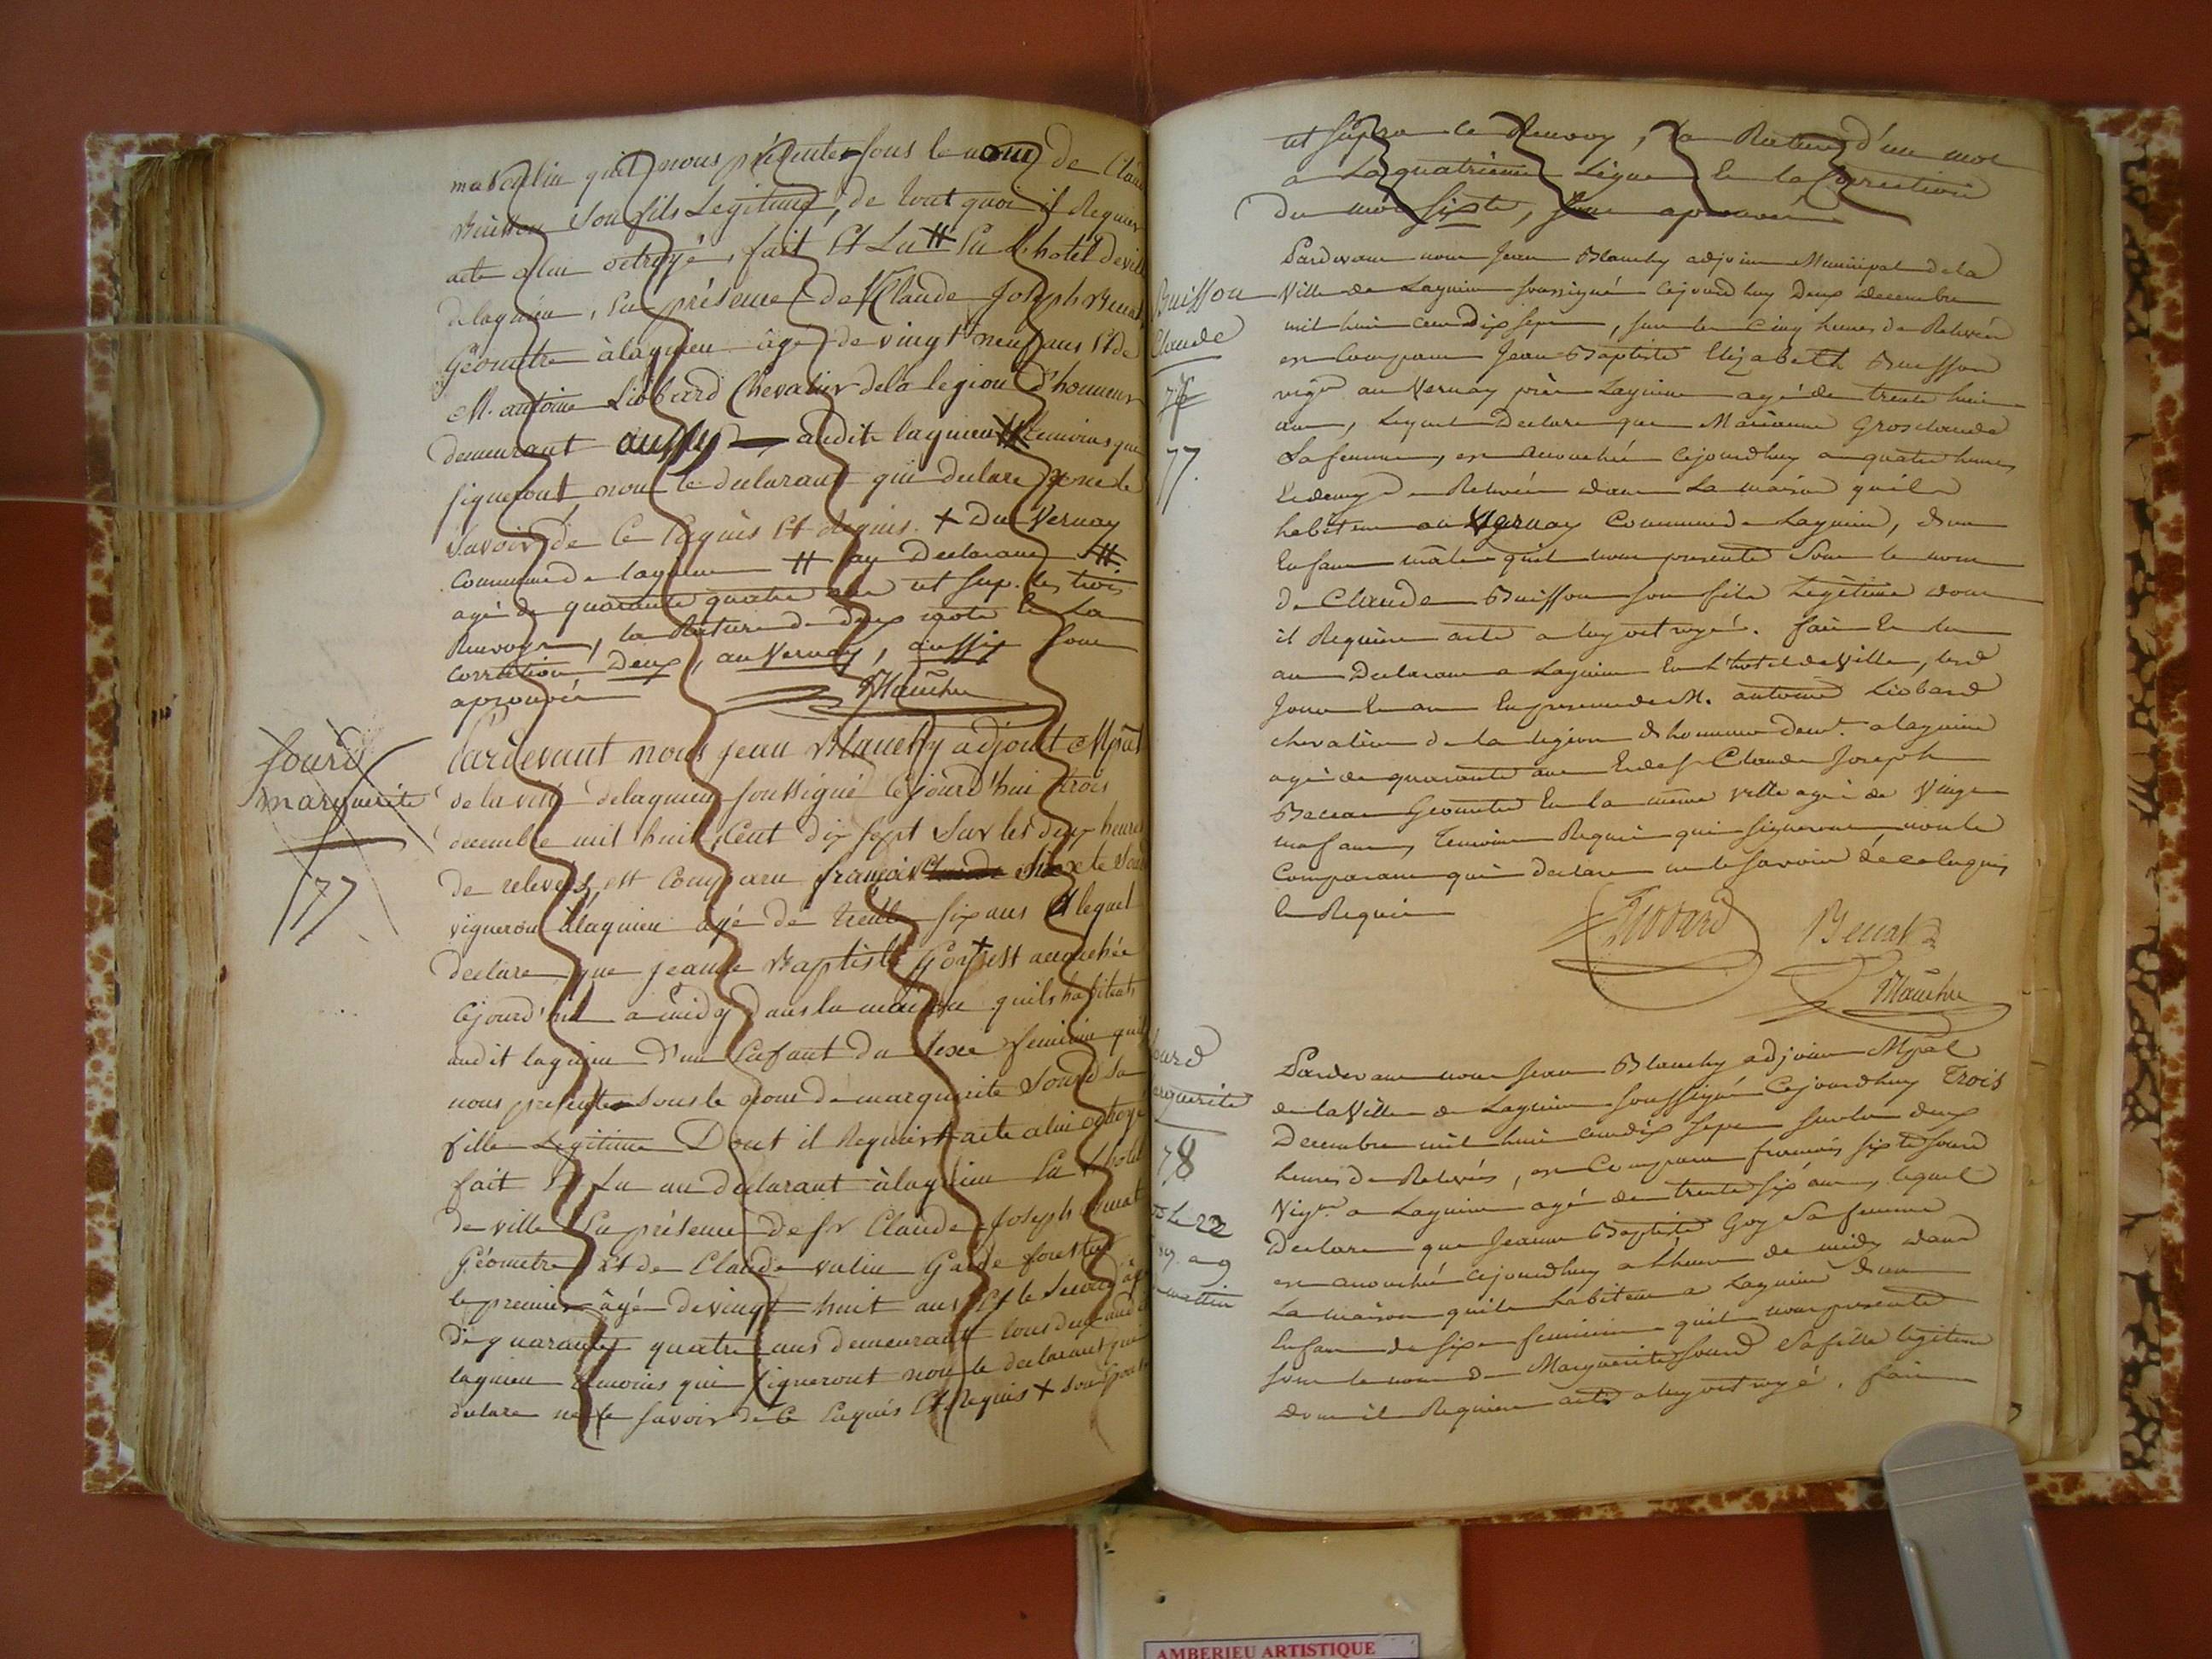 masculin qu'il nous présente sous le nom de Claude
Buisson son fils Légitime, de tout quoi il Requiert
acte a lui octroyé, fait Et Lu # En l'hotel de ville
de lagnieu, En présence de Claude Joseph
Géometre à lagnieu âgé de vingt neuf ans Et de
M. antoine Liobard Chevalier de la legion d'honneur
demeurant aussy audit lagnieu # temoins qui
signeront, non le declarant qui declare ne le
savoir de Ce Enquis Et Requis. + Du Vernay
Commune de lagnieu # au Declarant #
agé de quarante quatre ans ut sup. les trois
Renvoys, la Rature de deux mots Et La
Correction Deux, au Vernay, aussy sont
aprouvés Blanchy
Sourd
marguerite
77
Pardevant nous Jean Blanchy adjoint Mpal
de la ville de lagnieu soussigné Cejourd'hui trois
decembre mil huit Cent dix sept Sur les deux heures
de relevée, est Comparu françois Sixte Sourd
vigneron à lagnieu agé de trente six ans Et lequel
declare que jeanne Baptiste Goy + est accouchée
Cejourd'hui a midy dans la maison qu'ils habitent
audit lagnieu d'un Enfant du Sexe feminin qu'il
nous presente sous le nom de marguerite Sourd sa
fille Légitime Dont il Requiert acte a lui octroyé
fait Et Lu au declarant à lagnieu En L'hotel
de ville En présence de Sr Claude Joseph
Géometre Et de Claude valin Garde forestier
le premier âgé de vingt huit ans Et le Second âgé
de quarante quatre ans demeurant tous deux audit
lagnieu temoins qui signeront non le declarant qui
declare ne le savoir de Ce Enquis Et Requis +
ut supra le Renvoy, La Rature d'un mot
a La quatrieme Ligne Et la Correction
du mot sixte, sont aprouvés
Buisson
Claude
76
77.
Pardevant nous Jean Blanchy adjoint Municipal de la
Ville de Lagnieu soussigné Cejourdhuy Deux Decembre
mil huit cent Dix sept, sur les Cinq heures de Relevée
est Comparu Jean Baptiste Elizabeth Buisson
vign au Vernay près Lagnieu agé de trente huit
ans, Lequel Declare que Marianne Grosclaude
Sa femme, est accouchée Cejourdhuy a quatre heures
Et demy de Relevée dans La maison qu'ils
habitent au Vernay Commune de Lagnieu, d'un
Enfant mâle qu'il nous presente Sous le nom
de Claude Buisson son fils Légitime dont
il Requiert acte a luy octroyé. fait Et lu
au Declarant a Lagnieu En L'hotel de Ville, lesd
Jour Et an En presence de M. antoine Liobard
chevalier de la legion d'honneur demt. a lagnieu
agé de quarante ans Et de Sr Claude Joseph
Geometre En la même Ville agé de Vingt
neuf ans, Temoins Requis qui signeront non le
Comparant qui declare ne le savoir de ce Enquis
Et Requis
Liobard
Blanchy
78
Pardevant nous Jean Blanchy adjoint Mpal
de la Ville de Lagnieu soussigné Cejourdhuy Trois
Decembre mil huit cent dix sept sur les deux
heures de Relevée, est Comparu françois sixte Sourd
Vign a Lagnieu agé de trente six ans, lequel
Declare que Jeanne Baptiste Goy Sa femme
est accouchée Cejourdhuy a l'heure de midy dans
La maison qu'ils habitent a Lagnieu d'un
Enfant de sexe feminin qu'il nous presente
sous le nom de Marguerite Sourd Sa fille légitime
dont il Requiert acte a luy octroyé. fait
AMBERIEU ARTISTIQUE